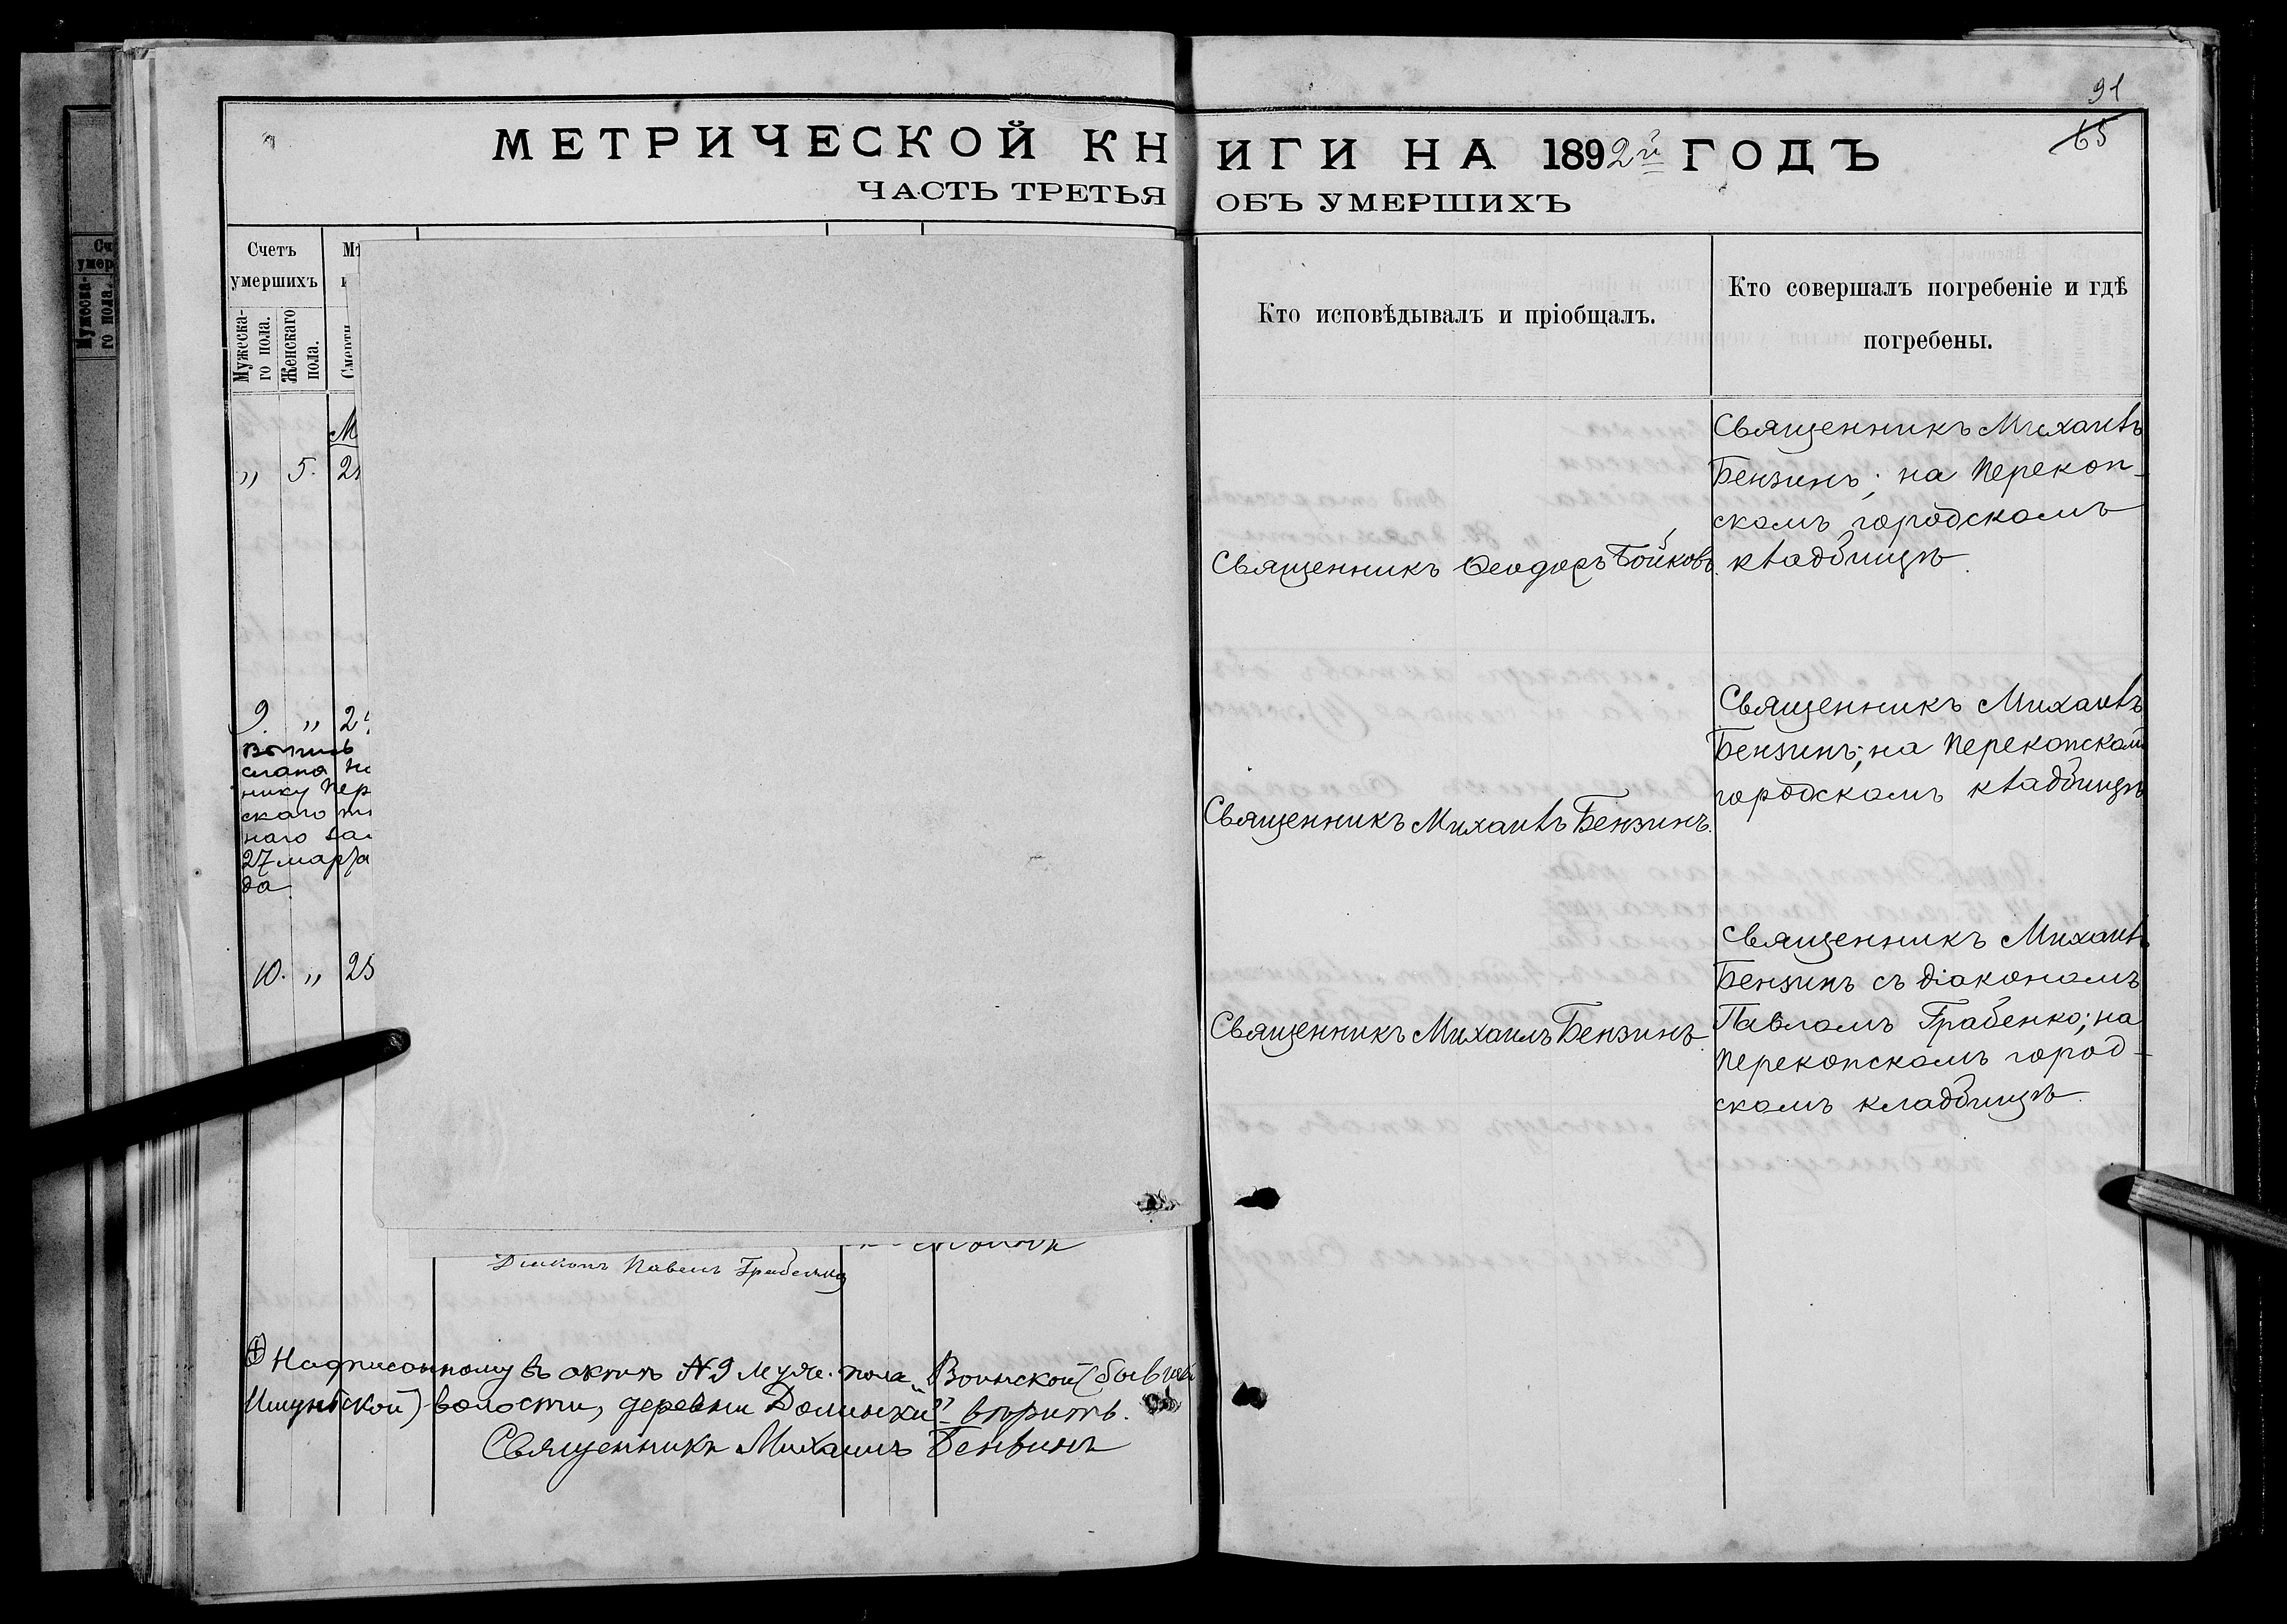 91
65
МЕТРИЧЕСКОЙ КНИГИ НА 1892й ГОДЪ
ЧАСТЬ ТРЕТЬЯ ОБЪ УМЕРШИХЪ
Счетъ
умершихъ
Мужеска-
го пола.
Женскаго
пола.
Кто исповѣдывалъ и пріобщалъ.
Кто совершалъ погребеніе и гдѣ
погребены.
М
„ 5. 2
Священникъ Ѳеодоръ Бойковъ.
Священникъ Михаилъ
Бензинъ; на Перекоп-
скомъ городскомъ
кладбищѣ.
9. „ 2
нику Пер
скаго
наго
27 марта
да
Священникъ Михаилъ Бензинъ.
Священникъ Михаилъ
Бензинъ; на Перекопскомъ
городскомъ кладбищѣ
10. „ 25
Священникъ Михаилъ Бензинъ
Священникъ Михаилъ
Бензинъ съ діакономъ
Павломъ Грабенко; на
Перекопскомъ город-
скомъ кладбищѣ.
Діаконъ Павелъ Грабенко
Надписанному въ актѣ №9 муж. пола „Воинской (бывшей
Ишуньской) волости, деревни Долинки" вѣрить.
Священникъ Михаилъ Бензинъ
Сч
умер
Мужеска-
го пола.